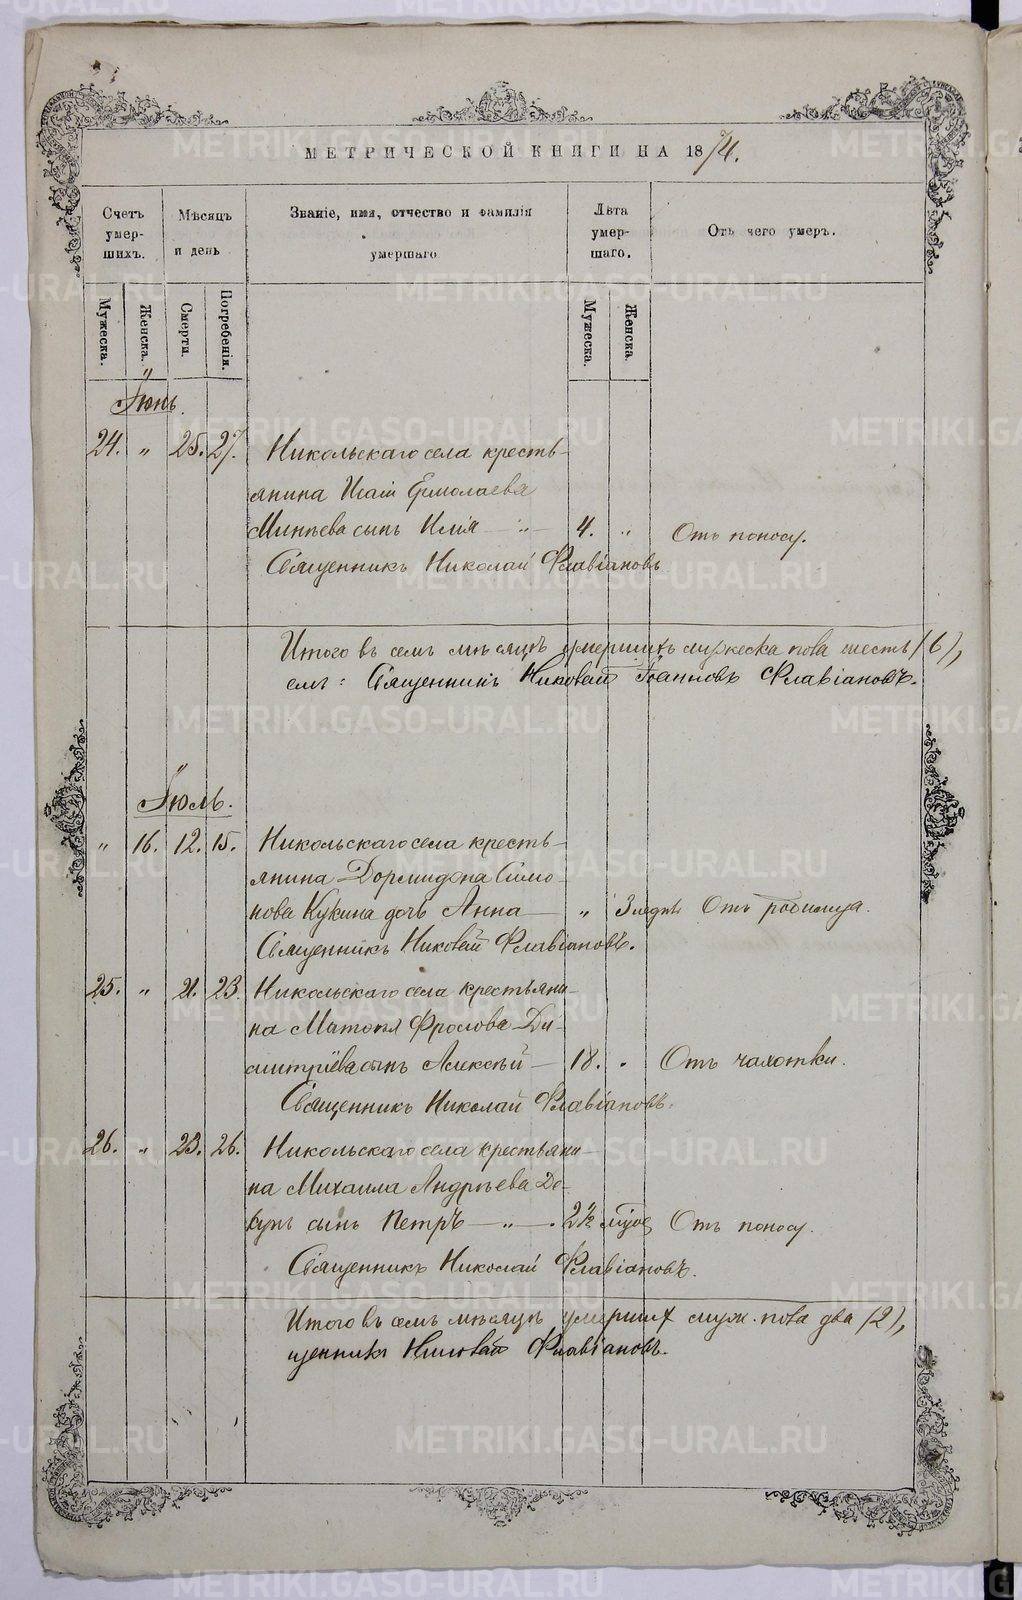 МЕТРИЧЕСКОЙ КНИГИ НА 1874.
Счетъ умер-шихъ.
Мѣсяцъ и день
Званіе, имя, отчество и фамилія умершаго
Лѣта умер-шаго.
Отъ чего умеръ.
Мужеска.
Женска.
Смерти.
Погребенія.
Мужеска.
Женска.
Іюнь.
24. „ 25. 27. Никольскаго села кресть-
янина Исаіи Ермолаева
Минѣева сынъ Илія — „ — 4. „ Отъ поносу.
Священникъ Николай Флавіановъ
Итого въ семъ мѣсяцѣ умершихъ мужеска пола шесть (6),
Священникъ Николай Іоанновъ Флавіановъ.
Іюль.
„ 16. 12. 15. Никольскаго села кресть-
янина Дормидона Симо-
нова Кукина дочь Анна — „ 3 недѣ. Отъ родимца.
Священникъ Николай Флавіановъ.
25. „ 21. 23. Никольскаго села крестьяни-
на Фролова Ди-
митріева сынъ Алексѣй — 18. „ Отъ чахотки.
Священникъ Николай Флавіановъ.
26. „ 23. 26. Никольскаго села крестьяни-
на Михаила Андреева
сынъ Петръ — „ — 2½ Отъ поносу.
Священникъ Николай Флавіановъ.
Итого въ семъ мѣсяцѣ умершихъ муж. пола два (2),
щенникъ Николай Флавіановъ.
METRIKI.GASO-URAL.RU